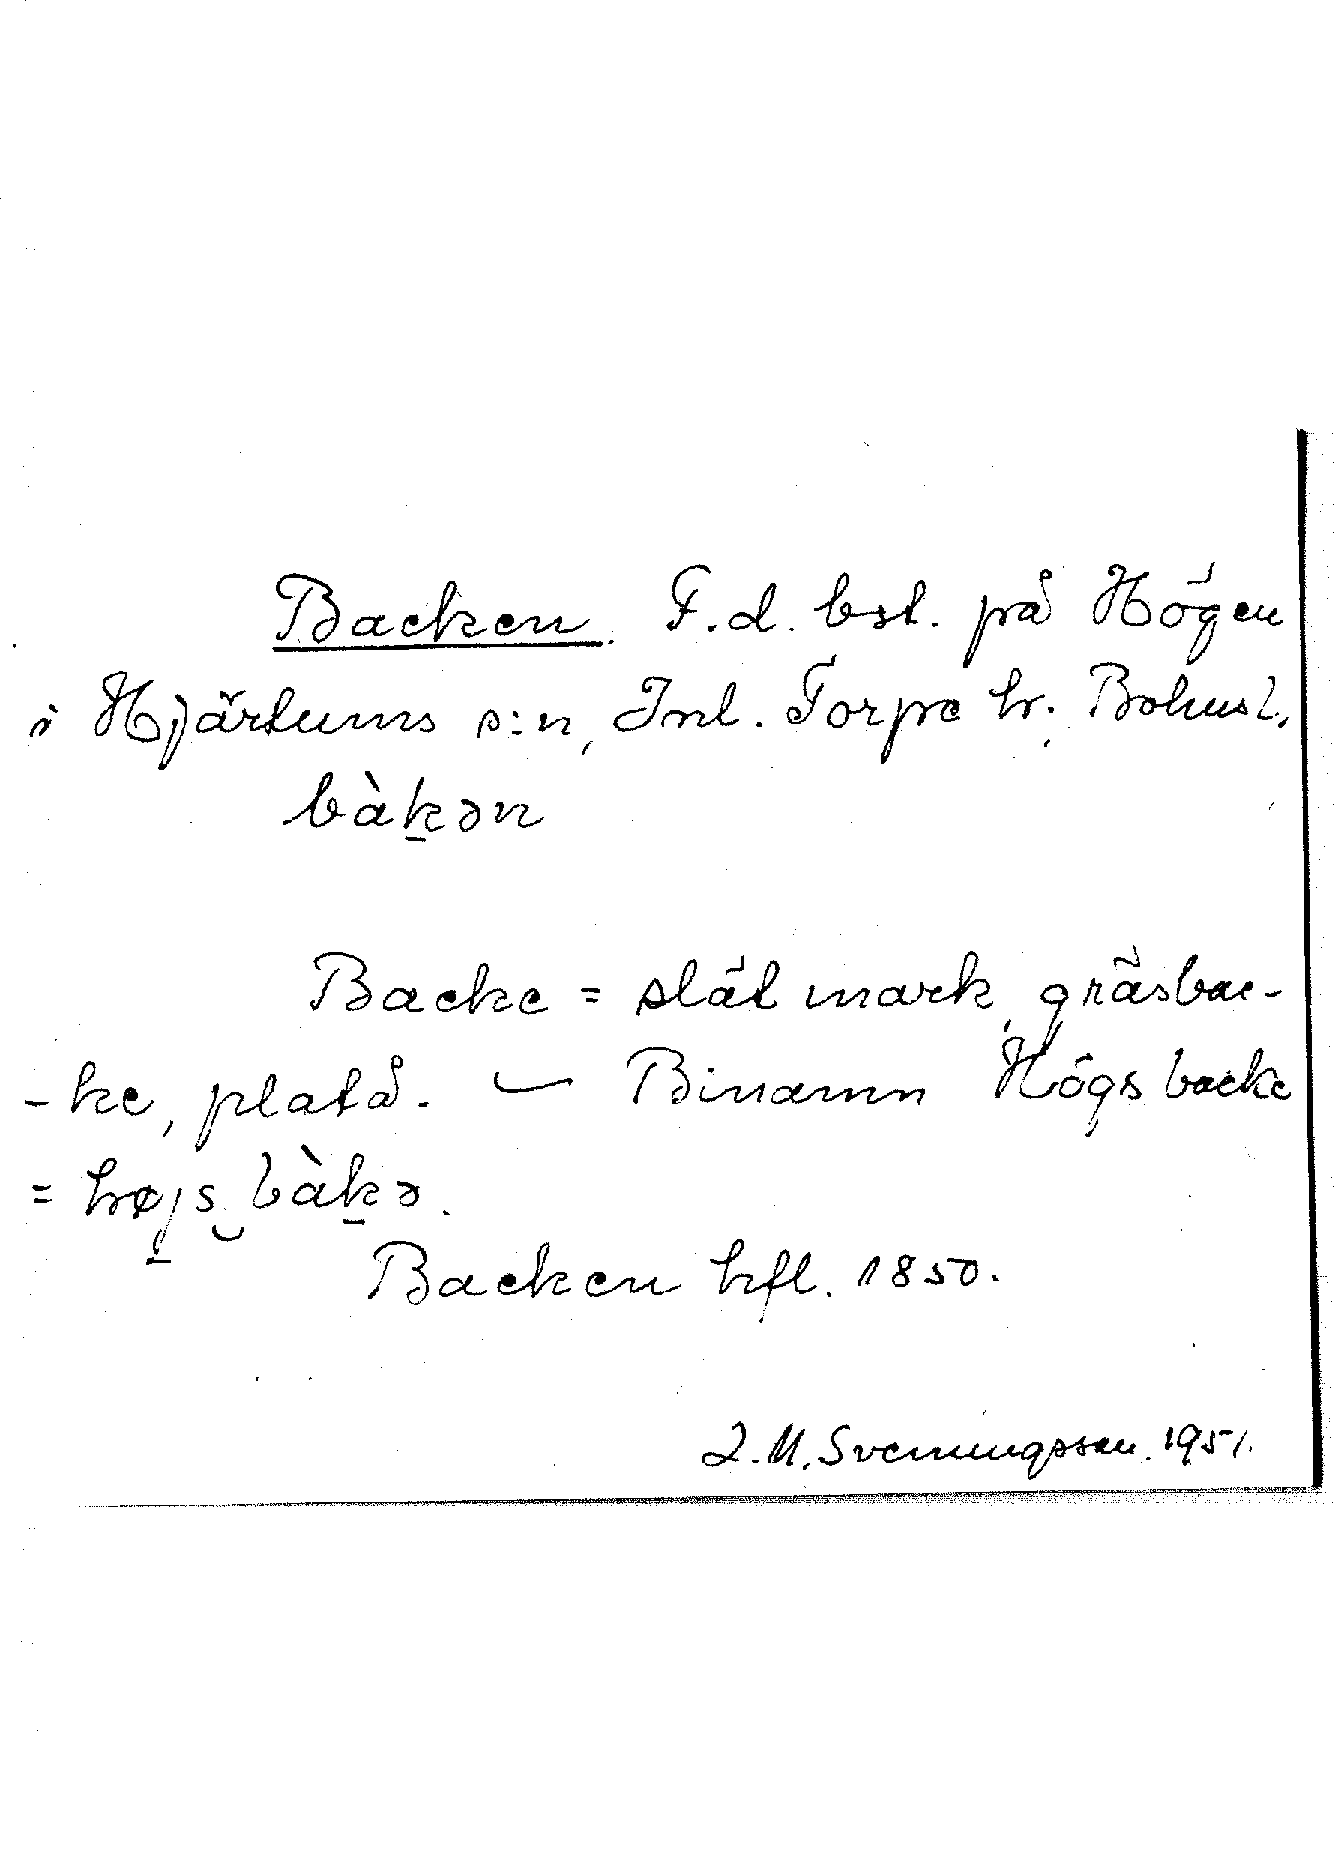 Backen. F.d. bst. på Högen
i Hjärtums s:n, Inl. Torpe hr. Bohusl.
bàk̠ən
Backe = slät mark, gräsbac-
-ke, platå. — Binamn Högsbacke
= høj̠s‿bàk̠ə.
Backen hfl. 1850.
L.M. Svenungsson. 1951.